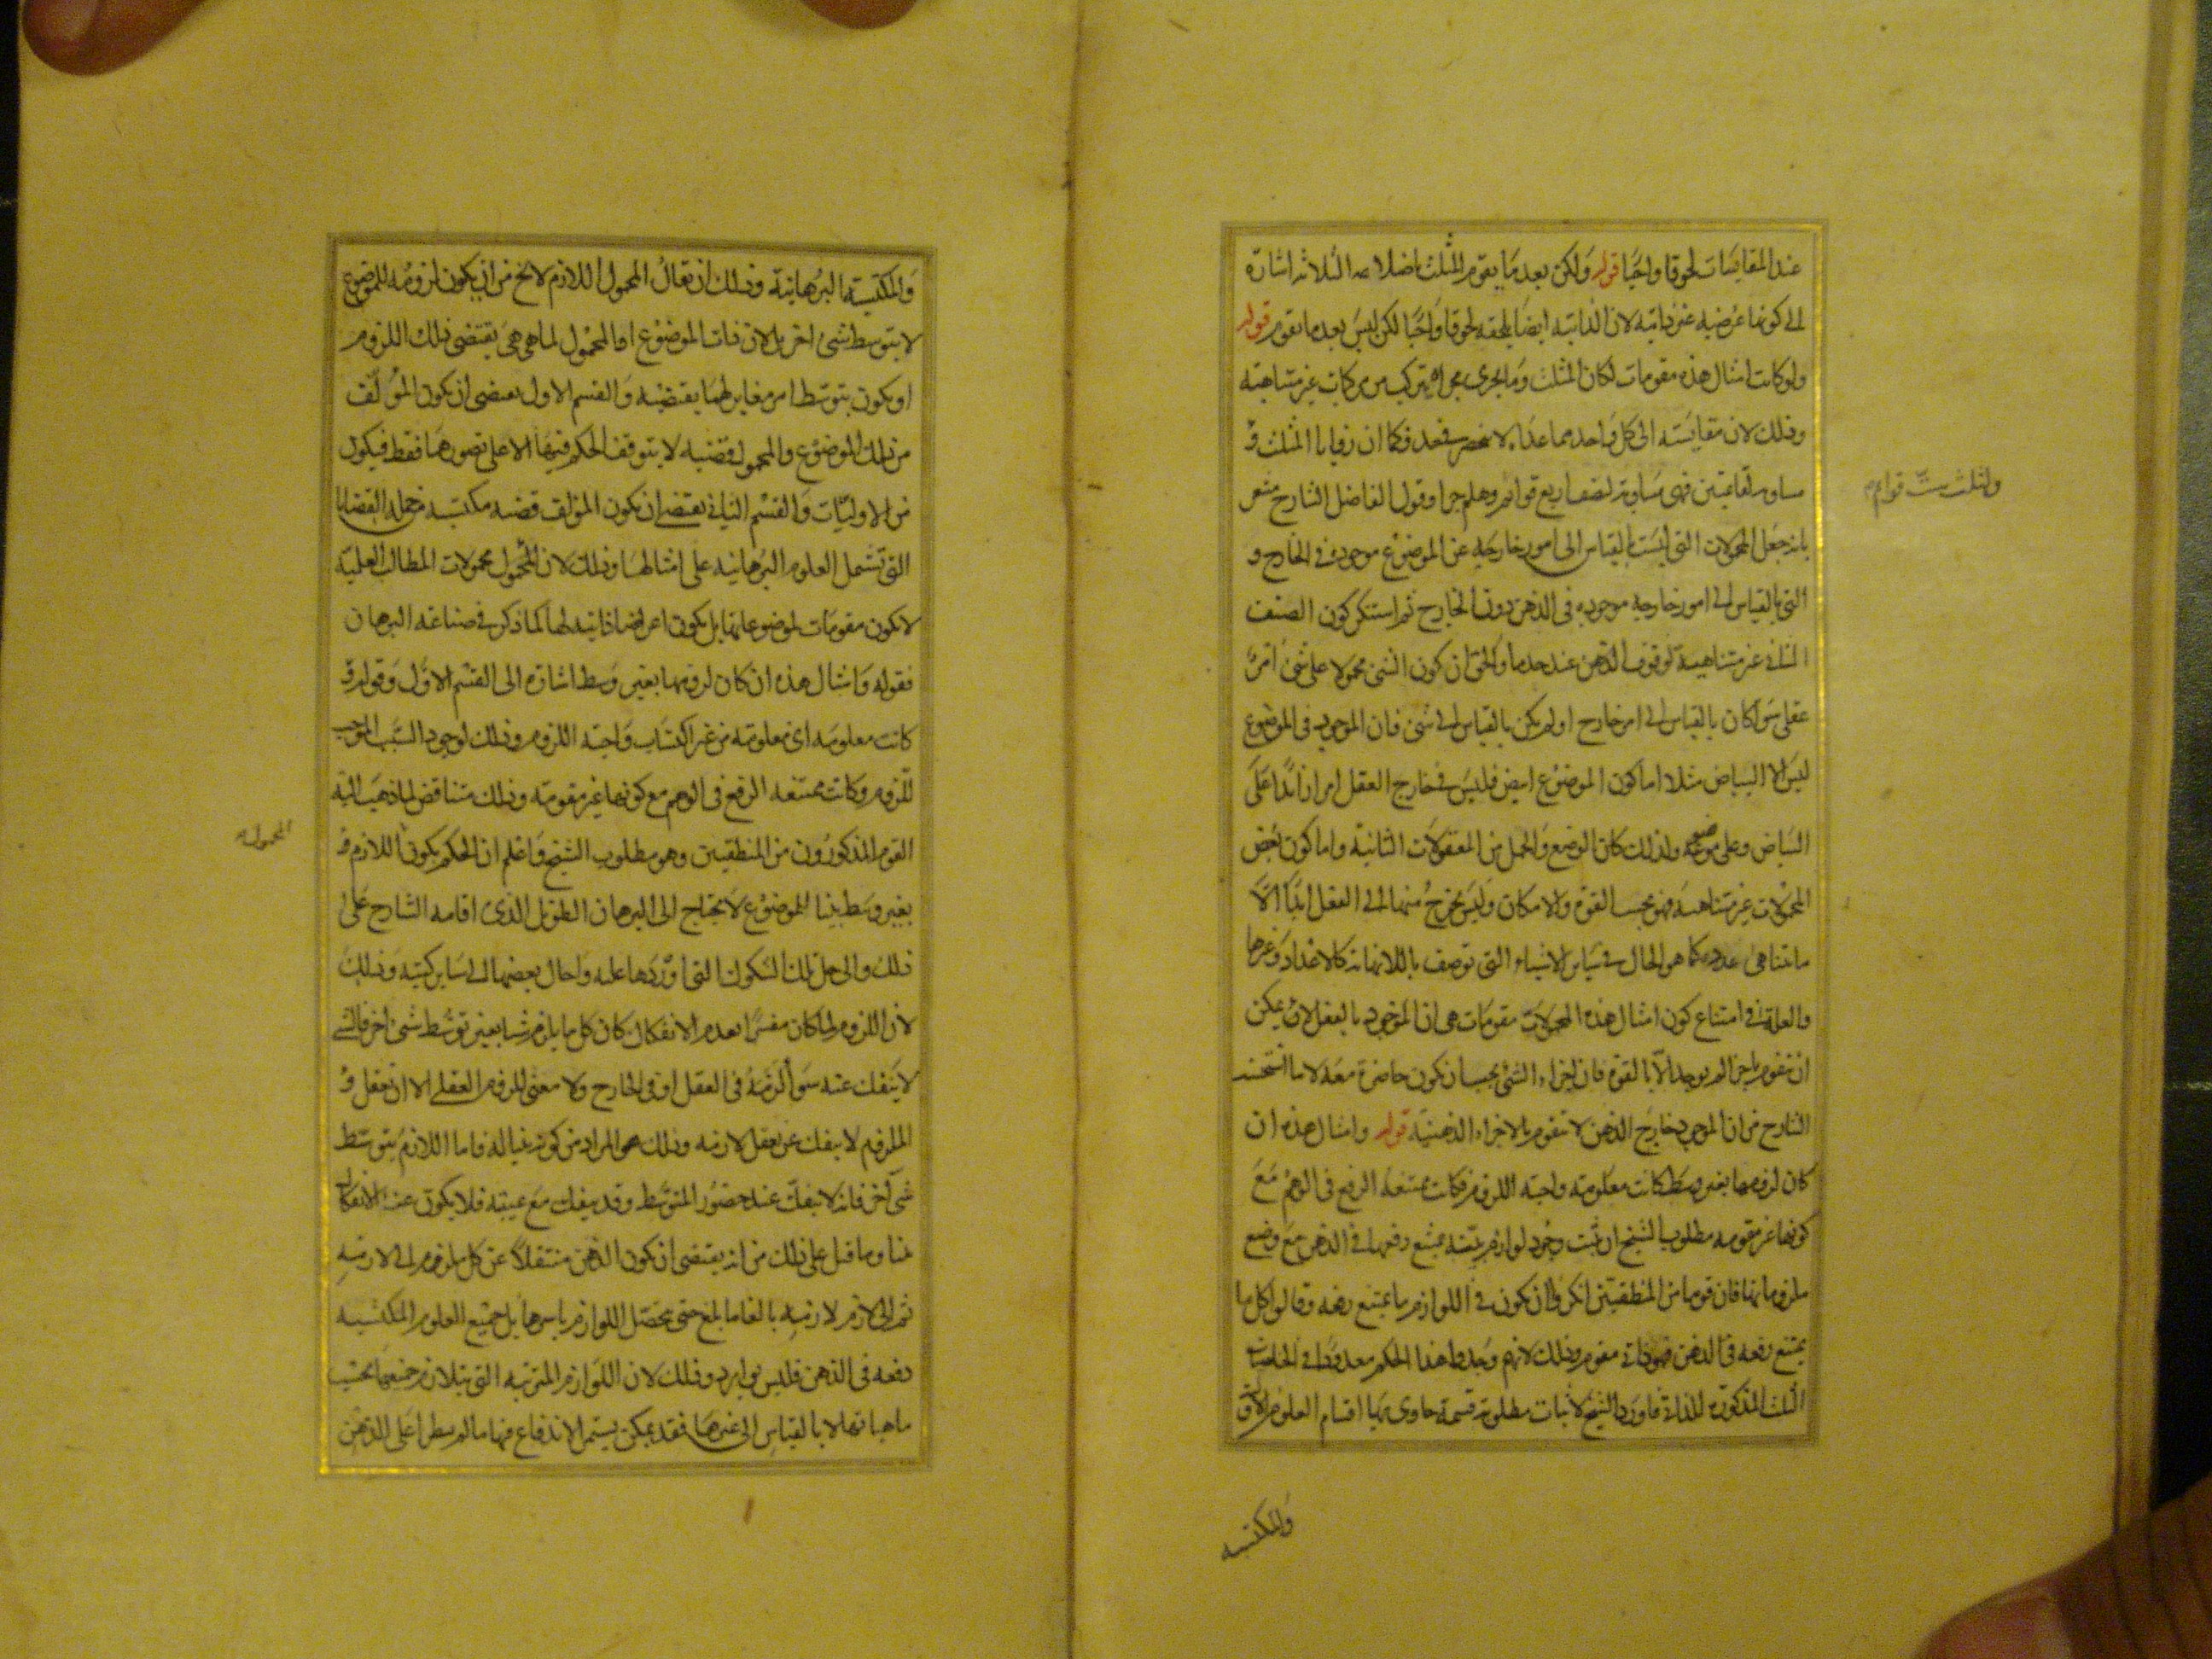 عند المقايسات لحوقا واجبا قوله ولكن بعد ما يقوم المثلث باضلاعه الثلاثة اشارة
الى كونها عرضية غير ذاتية لان الذاتية ايضا يلحقه لحوقا واجبا لكن ليس بعد ما يقوم قوله
ولو كانت امثال هذه مقومات لكان المثلث وما يجرى مجراه يتركب من مركبات غير متناهية
وذلك لان مقايسته الى كل واحد مما عداه لا ينحصر فى حد فكما ان زوايا المثلث
مساوية لقائمتين فهى مساوية لنصف اربع قوائم وهلم جرا وقول الفاضل الشارح مشعر
بانه جعل المحمولات التى ليست بالقياس الى امور خارجة عن الموضوع موجودة فى الخارج و
التى بالقياس الى امور خارجة موجودة فى الذهن دون الخارج ثم استنكر كون الصنف
الثانى غير متناهية لوقوف الذهن عند حد ما والحق ان كون الشئ محمولا على شئ امر
عقلى سوا كان بالقياس الى امر خارج او لم يكن بالقياس الى شئ فان الموجود فى الموضوع
ليس الا البياض مثلا اما كون الموضوع ابيض فليس فى خارج العقل امرا زائدا على
البياض وعلى موضوعه ولذلك كان الوضع والحمل من المعقولات الثانية واما كون بعض
المحمولات غير متناهية فهو بحسب القوة والامكان وليس يخرج منها الى العقل ابدا الا
ما يتناهى عدده كما هو الحال فى سائر الاشياء التى توصف باللانهاية كالاعداد وغيرها
والعلة فى امتناع كون امثال هذه المحمولات مقومات هى ان الموجود بالفعل لا يمكن
ان يتقوم باجزا لم يوجد الا بالقوة فان اجزاء الشئ يجب ان تكون حاضرة معه لا ما استحسنه
الشارح من ان الموجود خارج الذهن لا يتقوم بالاجزاء الذهنية قوله وامثال هذه ان
كان لزومها بغير وسط كانت معلومة واجبة اللزوم فكانت ممتنعة الرفع فى الوهم مع
كونها غير مقومة مطلوب الشيخ ان يثبت وجود لوازم بينة يمتنع رفعها فى الذهن مع وضع
ملزوماتها فان قوما من المنطقيين انكروا ان يكون فى اللوازم ما يمتنع رفعه وقالوا كل ما
يمتنع رفعه فى الذهن فهو ذاتى مقوم وذلك لانهم وجدوا هذا الحكم معدودا فى الخاصيات
الثلث المذكورة للذاتى فاورد الشيخ لاثبات مطلوبه قسمة حاوى بها اقسام العلوم الاولى
والمكتسبة
والمثلث ست قوائم
والمكتسبة البرهانية وذلك ان يقال المحمول اللازم لا يخ من ان يكون لزومه للموضوع
لا بتوسط شئ اخر بل لان ذات الموضوع او المحمول لما هى هى يقتضى ذلك اللزوم
او يكون بتوسط امر مغاير لهما يقتضيه والقسم الاول يقتضى ان يكون المؤلف
من ذلك الموضوع والمحمول قضية لا يتوقف الحكم فيها الا على تصورهما فقط فيكون
من الاوليات والقسم الثانى يقتضى ان يكون المؤلف قضية مكتسبة من جملة القضايا
التى تشمل العلوم البرهانية على امثالها وذلك لان المحمول محمولات المطالب العلمية
لا يكون مقومات لموضوعاتها بل يكون اعراضا ذاتية لها كما ذكر فى صناعة البرهان
فقوله وامثال هذه ان كان لزومها بغير وسط اشارة الى القسم الاول وقوله
كانت معلومة اى معلومة من غير اكتساب واجبة اللزوم وذلك لوجود السبب الموجب
للزوم وكانت ممتنعة الرفع فى الوهم مع كونها غير مقومة وذلك متناقض لما ذهب اليه
القوم المذكورون من المنطقيين وهو مطلوب الشيخ واعلم ان الحكم بكون اللازم
بغير وسط بينا للموضوع لا يحتاج الى البرهان الطويل الذى اقامه الشارح على
ذلك والى حل تلك الشكوك التى اوردها عليه واحال بعضها الى ساير كتبه وذلك
لان اللزوم لما كان مفسرا بعدم الانفكاك كان كل ما يلزم شيا بغير توسط شئ اخر فالشئ
لا ينفك عنه سوا لزمه فى العقل او فى الخارج ولا معنى للزوم العقلى الا ان تعقل
الملزوم لا ينفك عن تعقل لازمه وذلك هو المراد من كونه بينا له فاما اللازم بتوسط
شئ آخر فانه لا ينفك عند حضور المتوسط وقد ينفك مع غيبته فلا يكون عند الانفكاك
بينا وما قيل على ذلك من انه يقتضى ان يكون الذهن منتقلا عن كل ملزوم الى لازمه
ثم الى لازم لازمه بالغا ما بلغ حتى يحصل اللوازم باسرها بل جميع العلوم المكتسبة
دفعة فى الذهن فليس بوارد وذلك لان اللوازم المترتبة التى يتلازم جميعها بحسب
ماهياتها لا بالقياس الى غيرها فقد يمكن يستمر الاندفاع فيها ما لم يطرا على الذهن
المحمول